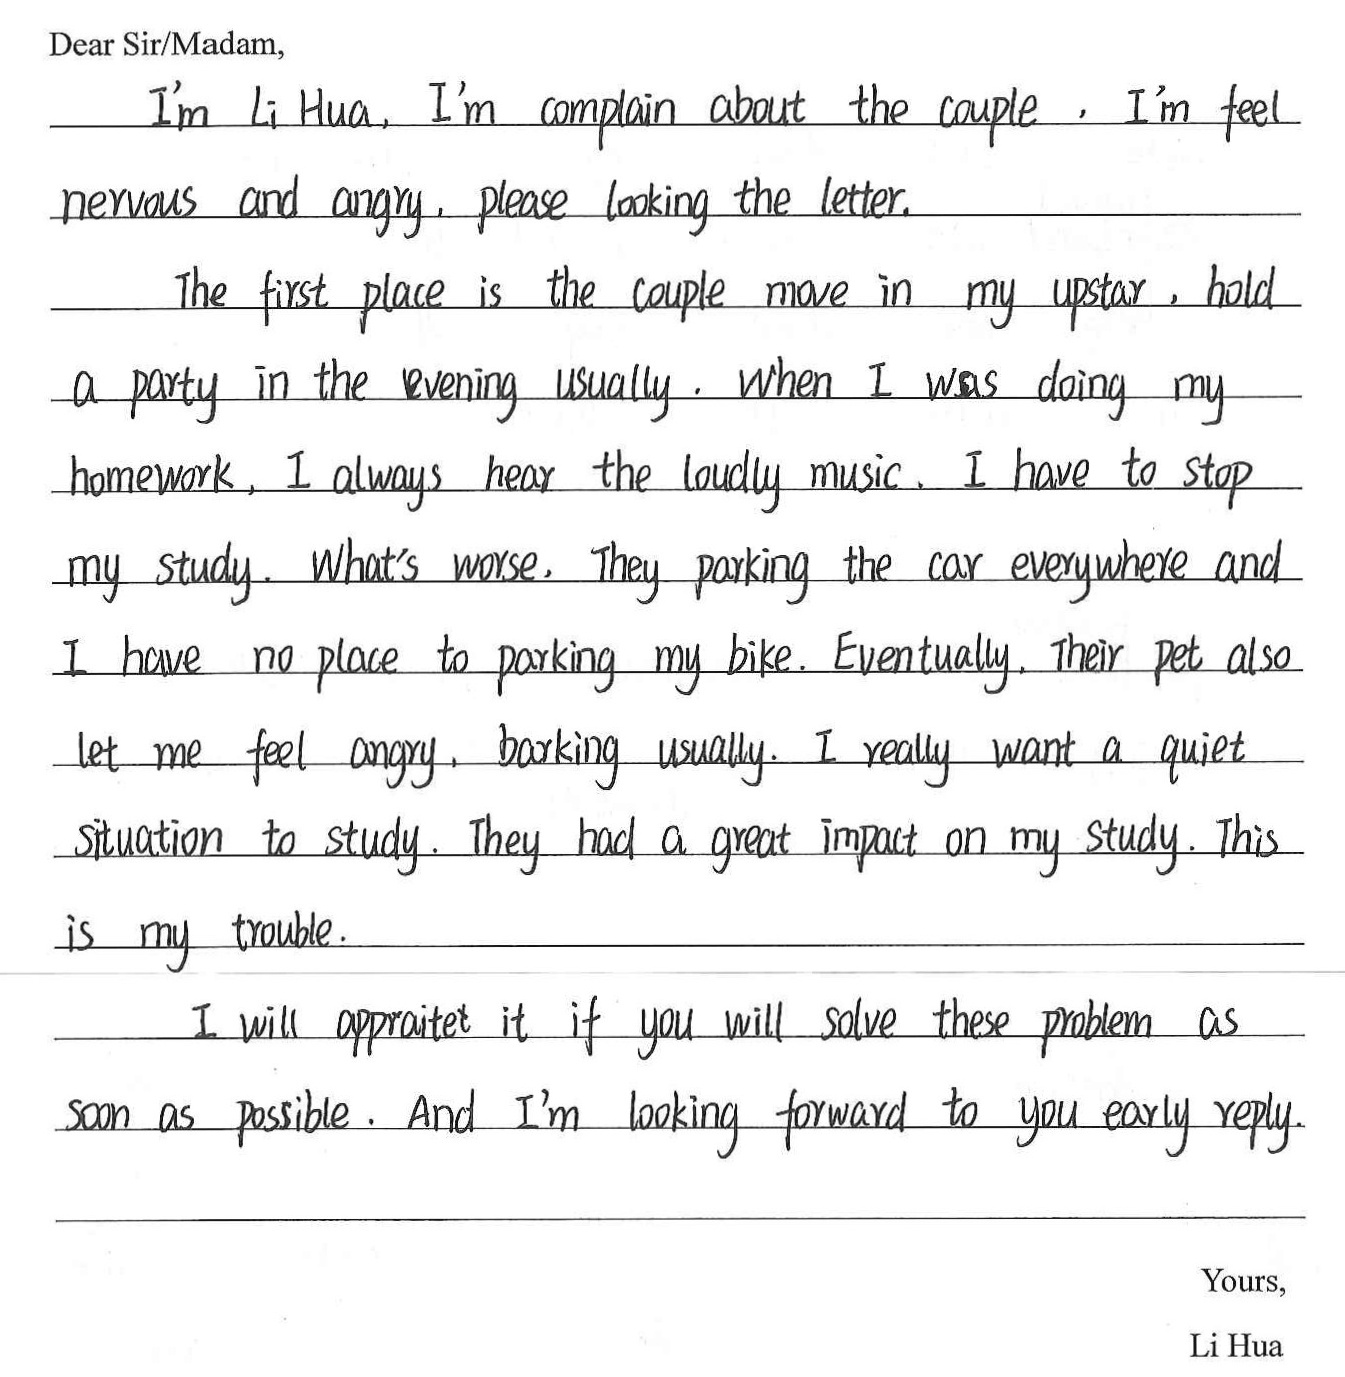 Dear Sir/Madam,
I'm Li Hua, I'm complain about the couple, I'm feel
nervous and angry. please looking the letter.
The first place is the couple move in my upstar, hold
a party in the evening usually. When I was doing my
homework, I always hear the loudly music. I have to stop
my study. What's worse, They parking the car everywhere and
I have no place to parking my bike. Eventually, Their pet also
let me feel angry, barking usually. I really want a quiet
situation to study. They had a great impact on my study. This
is my trouble.
I will appraitet it if you will solve these problem as
soon as possible. And I'm looking forward to you early reply.
Yours,
Li Hua